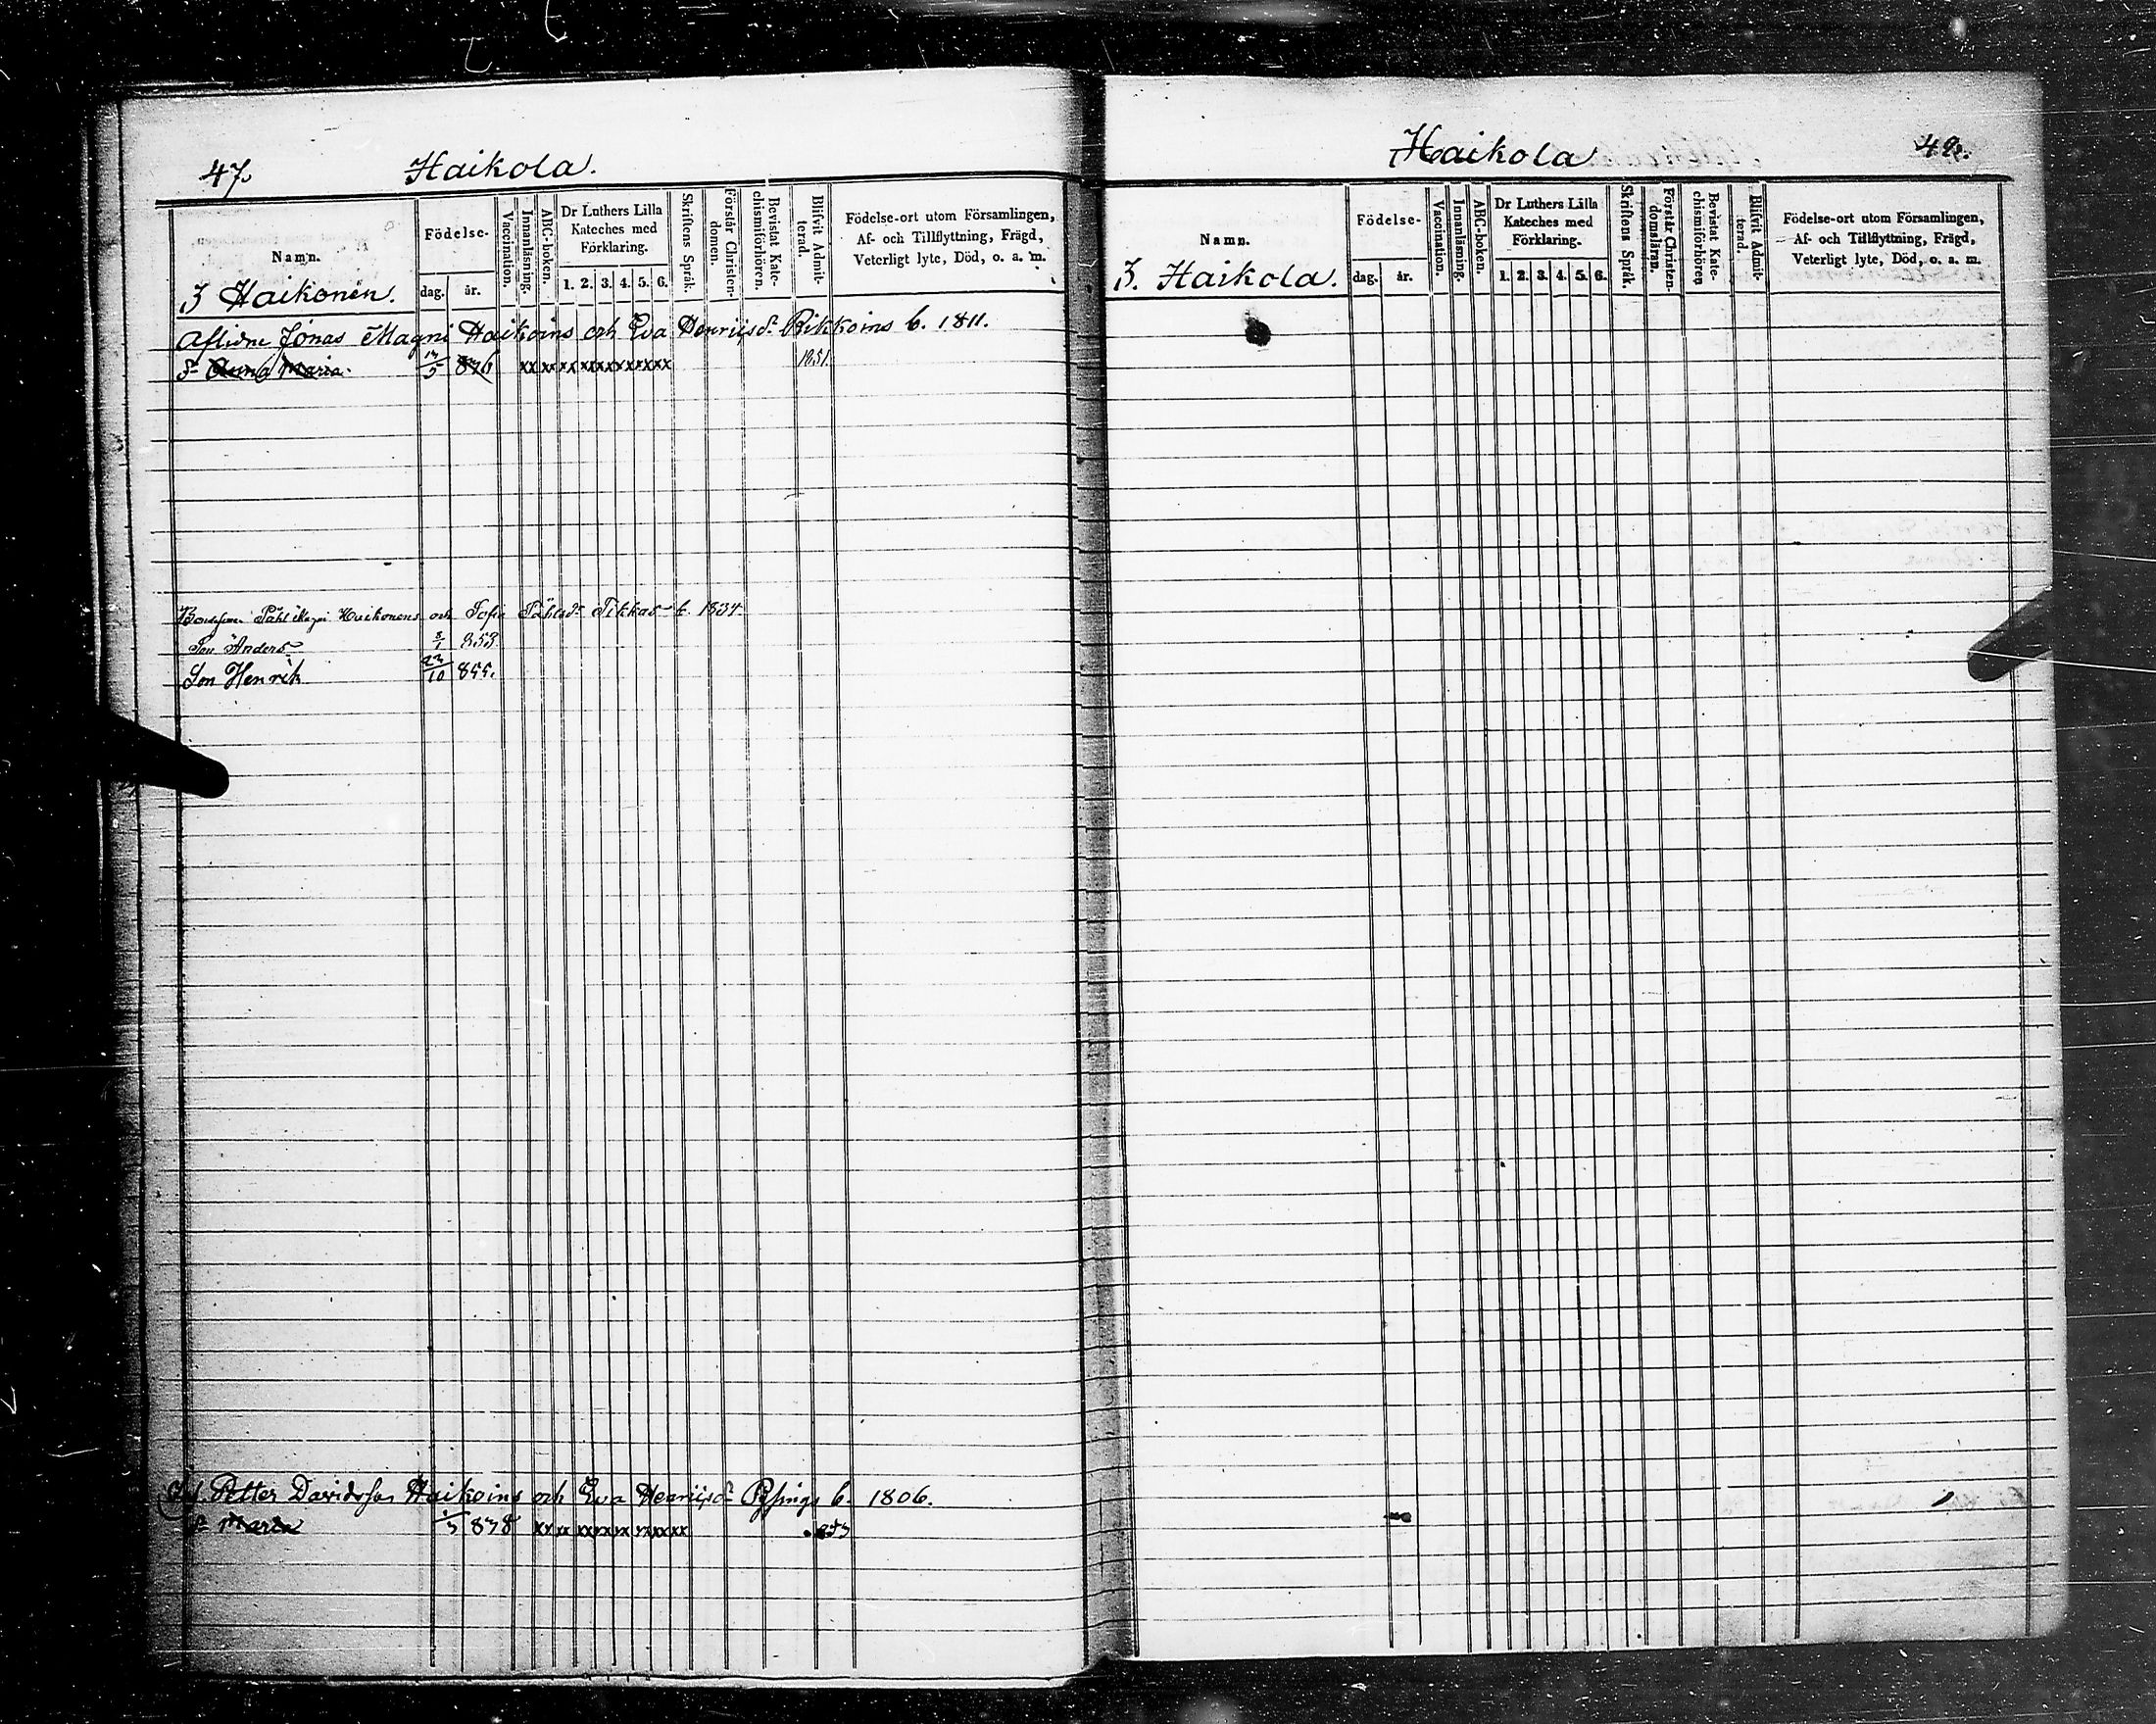 47. Haikola.
Namn. Födelse- Vaccination. Innanläsning. ABC-boken. Dr Luthers Lilla Kateches med Förklaring. Skriftens Språk. Förstår Christendomen. Bevistat Katechismiförhören. Blifvit Admitterad. Födelse-ort utom Församlingen, Af- och Tillflyttning, Frägd, Veterligt lyte, Död, o. a. m.
dag. år. 1. 2. 3. 4. 5. 6.
3 Haikonen.
Aflidne Jonas Magni Haikoins och Eva Henriisdr Rikkoins b. 1811.
dr Anna Maria 836 xx xx xx xx xx xx xx xx 1851.
Bondesonen Påhl Magni Haikonens och Sofia Påhlsdr Tikkas b. 1834.
Son Anders 8/1 853
Son Henrik 23/10 855.
Petter Davidsson Haikoins och Eva Henriisdr b. 1806.
dr Maria 838 xx xx xx xx xx xx xx xx 853
Haikola 48.
Namn. Födelse- Vaccination. Innanläsning. ABC-boken. Dr Luthers Lilla Kateches med Förklaring. Skriftens Språk. Förstår Christendomsläran. Bevistat Katechismiförhören Blifvit Admitterad. Födelse-ort utom Församlingen, Af- och Tillflyttning, Frägd, Veterligt lyte, Död, o. a. m.
dag. år. 1. 2. 3. 4. 5. 6.
3. Haikola.